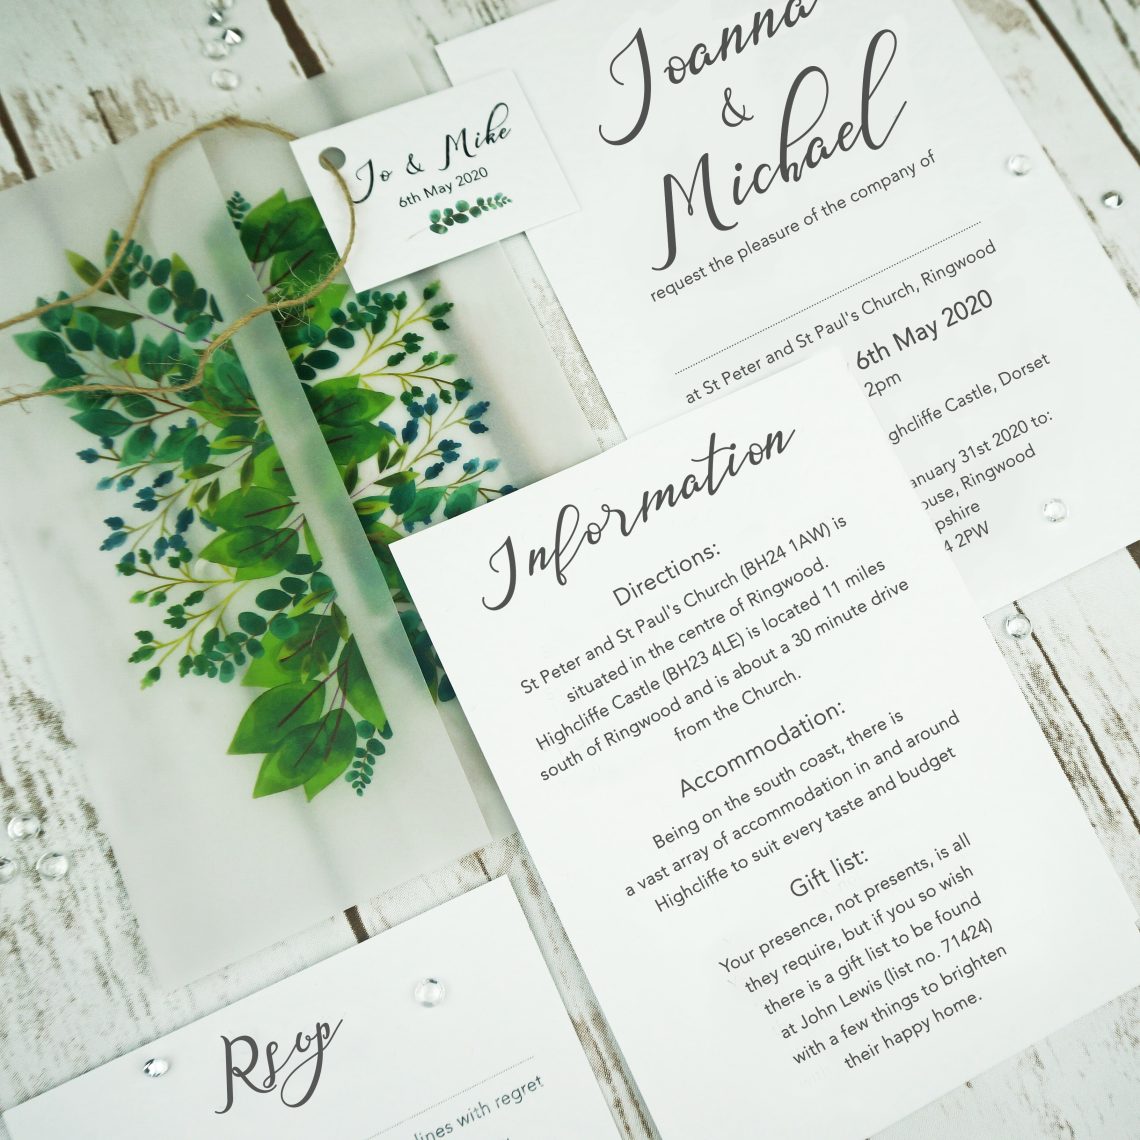 Jo & Mike
6th May 2020
Joanna
&
Michael
request the pleasure of the company of
at St Peter and St Paul's Church, Ringwood
6th May 2020
2pm
Castle, Dorset
31st 2020 to:
Ringwood
2PW
Information
Directions:
St Peter and St Paul's Church (BH24 1AW) is
situated in the centre of Ringwood.
Highcliffe Castle (BH23 4LE) is located 11 miles
south of Ringwood and is about a 30 minute drive
from the Church.
Accommodation:
Being on the south coast, there is
a vast array of accommodation in and around
Highcliffe to suit every taste and budget
Gift list:
Your presence, not presents, is all
they require, but if you so wish
there is a gift list to be found
at John Lewis (list no. 71424)
with a few things to brighten
their happy home.
Rsvp
lines with regret